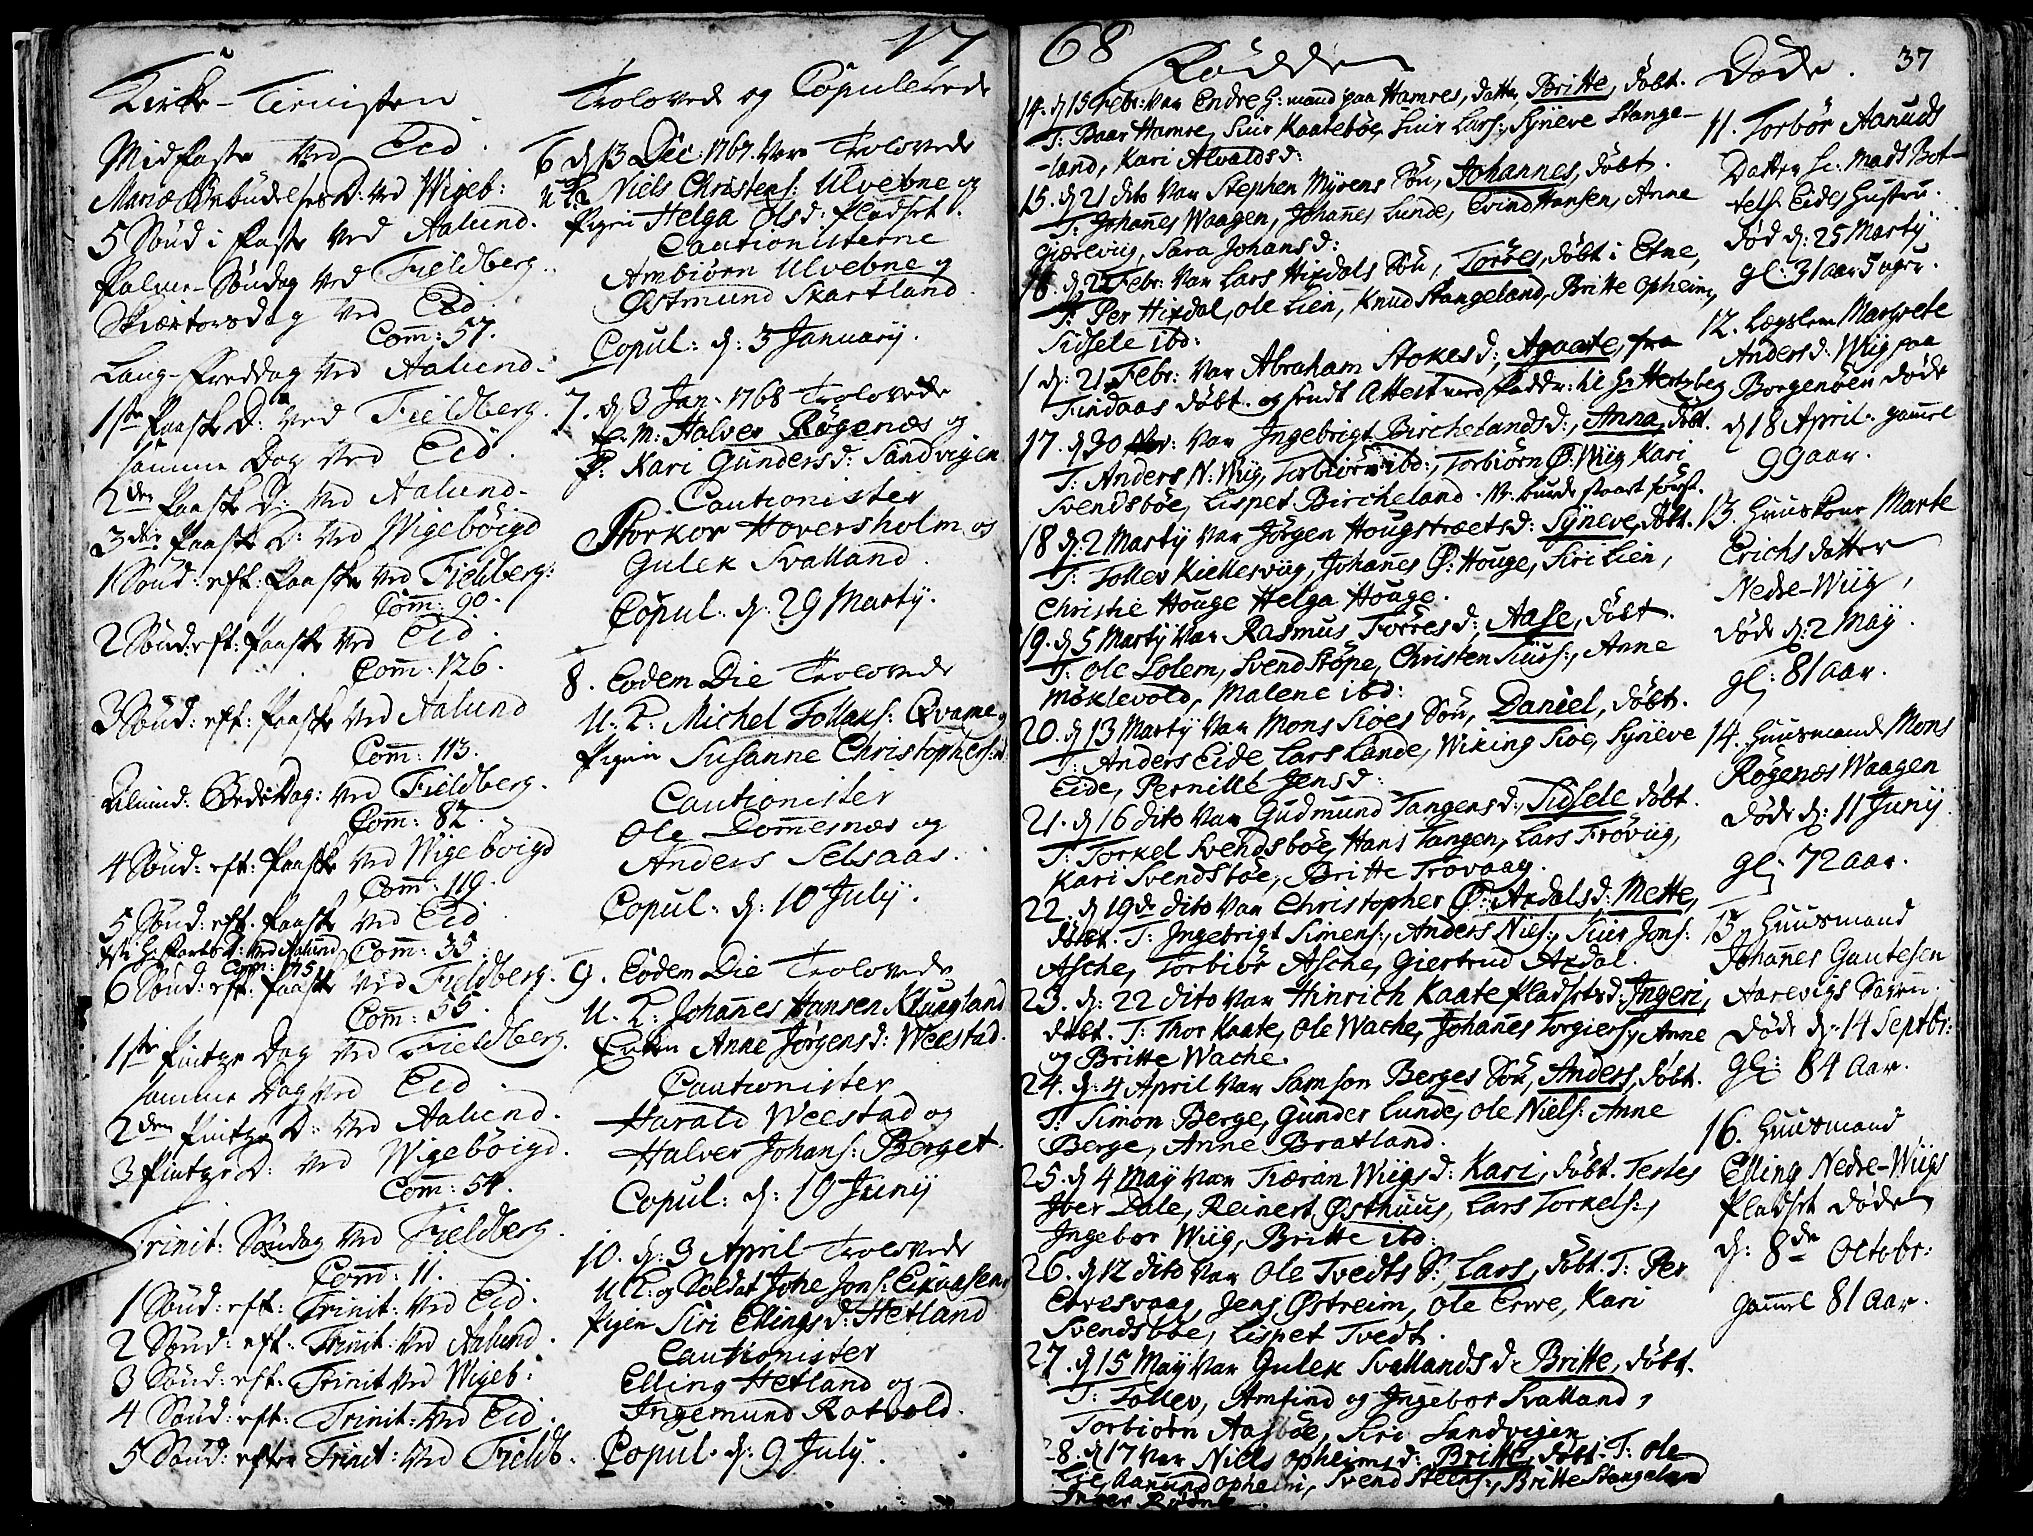 17
Kirke-Tienisten
Midfaste ved Eid.
Mariæ Bebudelses D: ved Wigeb:
5 Sönd i faste ved Aalund.
Palme-Söndag ved Fieldberg.
Skiertorsdag ved Eid
Com̄: 57.
Lang-Freddag ved Aalund.
1ste Paaske D: ved Fieldberg.
samme Dag ved Eid.
2den Paaske D: ved Aalund.
3die Paaske D: ved Wigebøigd
1 Sönd: eft: Paaske ved Fieldberg:
Com̄: 90.
2 Sönd: eft: Paaske ved Eid.
Com̄: 126.
3 Sönd: eft: Paaske ved Aalund
Com̄: 113.
Almind: BedeDag: ved Fieldberg.
Com̄: 82.
4 Sönd: eft: Paaske ved Wigebøigd
Com̄: 119.
5 Sönd: eft: Paaske ved Eid
Com̄: 35.
Christi H: farts D: ved Aalund
Com: 75
6 Sönd: eft: Paaske ved Fieldberg.
Com̄: 55.
1ste Pintze Dag ved Fieldberg.
samme Dag ved Eid.
2den Pintze D: ved Aalund.
3 Pintze D: ved Wigebøigd.
Com̄: 54.
Trinit: Söndag ved Fieldberg.
Com̄: 11.
1 Sönd: eft: Trinit: ved Eid.
2 Sönd: eft: Trinit: ved Aalund.
3 Sönd: eft: Trinit ved Wigeb:
4 Sönd: eft: Trinit: ved Eid.
5 Sönd: efter Trinit: ved Fieldb.
Trolovede og Copulerede
6 d: 13 Dec: 1767. Vare Trolovede
Niels Christens: Ulvebne og
Pigen Helga Olsd: Pladset.
Cautionisterne
Ambiørn Ulvebne og
Østmund Skartland.
Copul: d: 3 January.
7. d: 3 Jan: 1768 Trolovede
E. M: Halver Røgenes og
P: Kari Gundersd: Sandvigen
Cautionister
Storkor Hoversholm og
Gulek Svalland.
Copul: d: 29 Marty.
8. Eodem Die Trolovede
U. K: Michel Follaks: Qvame og
Pigen Susanne Christophersd:
Cautionister
Ole Dom̄esnes og
Anders Selsaas.
Copul: d: 10 July.
9. Eodem Die Trolovede
U. K: Johan̄es Hansen Kluugland
Enken Anne Jørgensd: Weestad.
Cautionister
Harald Weestad og
Halver Johans: Berget
Copul: d: 19 Juny
10. d: 3 April Trolovede
U. K: og Soldat Johe Jons: Eikaasen
Pigen Siri Ellingsd: Hetland
Cautionister
Elling Hetland og
Ingemund Rotvold.
Copul. d: 9 July.
68
Födde
14. d: 15 Febr: var Endre H:mand paa Hamres, datter, Britte, döbt.
T: Baar Hamre, Siur Kaatebøe, Siur Lars:, Syneve Stange-
-land, Kari Alvaldsd:
15. d: 21 dito var Stephen Myrens Sön, Johannes, döbt.
T: Johan̄es Waagen, Johan̄es Lunde, Evind Hansen, Anne
Gierevig, Sara Johansd:
16. d: 22 Febr: var Lars Hixdals Sön, Torres, döbt i Etne,
T: Per Hixdal, Ole Lien, Knud Stangeland, Britte Opheim,
Sidsele ibd:
1 d: 21 Febr: var Abraham Stokesd:, Agaate, fra
Findaas döbt. og sendt Attest med faddr: til Hr Hertzberg
17. d: 30 var Ingebrigt Birchelandsd:, Anna, döbt.
T: Anders N: Wiig, Torbiør ibd:, Torbiørn Ø: Wiig Kari
Svendsbøe, Lispet Bircheland. NB. burde staaet först.
18 d: 2 Marty var Jørgen Hougstrætsd: Synevе, döbt.
T: Tollev Kiellesviig, Johan̄es Ø: Houge, Siri Lien,
Christie Houge Helga Houge.
19. d: 5 Marty var Rasmus Torresd:, Aase, döbt.
T: Ole Solem, Svend Støpe, Christen Siurs:, Anne
Møklevold, Malene ibd:
20. d: 13 Marty var Mons Sioes Sön, Daniel, döbt.
T: Anders Eide, Lars Lande, Wiking Sioe, Syneve
Eide, Pernille Jensd:
21. d: 16 dito var Gudmund Tangensd:, Sidsele döbt.
T: Torkel Svendsbøe, Hans Tangen, Lars Trøviig,
Kari Svendsbøe, Britte Trovaag.
22. d: 19de dito var Christopher Ø: Axdalsd: Mette,
döbt. T: Ingebrigt Simens:, Anders Niels:, Siur Jons:
Asche, Torbiør Asche, Giertrud Axdal.
23. d: 22 dito var Hinrich Kaate Pladsetsd: Ingeri,
döbt. T: Thor Kaate, Ole Wache, Johan̄es Torgiers:, Anne
og Britte Wache.
24. d: 4 April var Samson Berges Sön, Anders, döbt.
T: Simon Berge, Gunder Lunde, Ole Niels: Anne
Berge, Anne Bratland.
25. d: 4 May var Tiæran Wiigsd: Kari, döbt. Testes
Iver Dale, Reinert Østhuus, Lars Torkels:,
Ingebor Wiig, Britte ibd:
26. d: 12 dito var Ole Tvedts S:, Lars, döbt. T: Per
Ervesvaag, Jens Østreim, Ole Erve, Kari
Svendsbøe, Lispet Tvedt.
27. d: 15 May var Gulek Svallandsd: Britte, döbt.
T: Tollev, Amfind og Ingebor Svalland,
Torbiørn Aasbøe, Siri Sandvigen
28. d: 17 var Niels Opheimsd: Britte, döbt. T: Ole
Lie, Aamund Opheim, Svend Steens:, Britte Stangeland
Inger
Döde. 37
11. Torbör Aanuds
Datter Sr. Mads Bot-
tels: Eides Hustru.
Död d: 25 Marty
gl: 31 aar 5 uger.
12. Lægslem Margrete
Andersd: Wiig paa
Borgenøen döde
d: 18 April. gam̄el
99 aar.
13. Huuskone Marte
Erichs datter
Nedre-Wiig,
döde d: 2 May.
gl: 81 aar.
14. Huusmand Mons
Røgenes Waagen
döde d: 11 Juny.
gl: 72 aar.
15. Huusmand
Johan̄es Gautesen
Aarevigs Saten.
döde d: 14 Septbr:
gl: 84 aar.
16. Huusmand
Elling Nedre-Wiigs
Pladset döde
d: 8de Octobr:
gam̄el 81 aar.